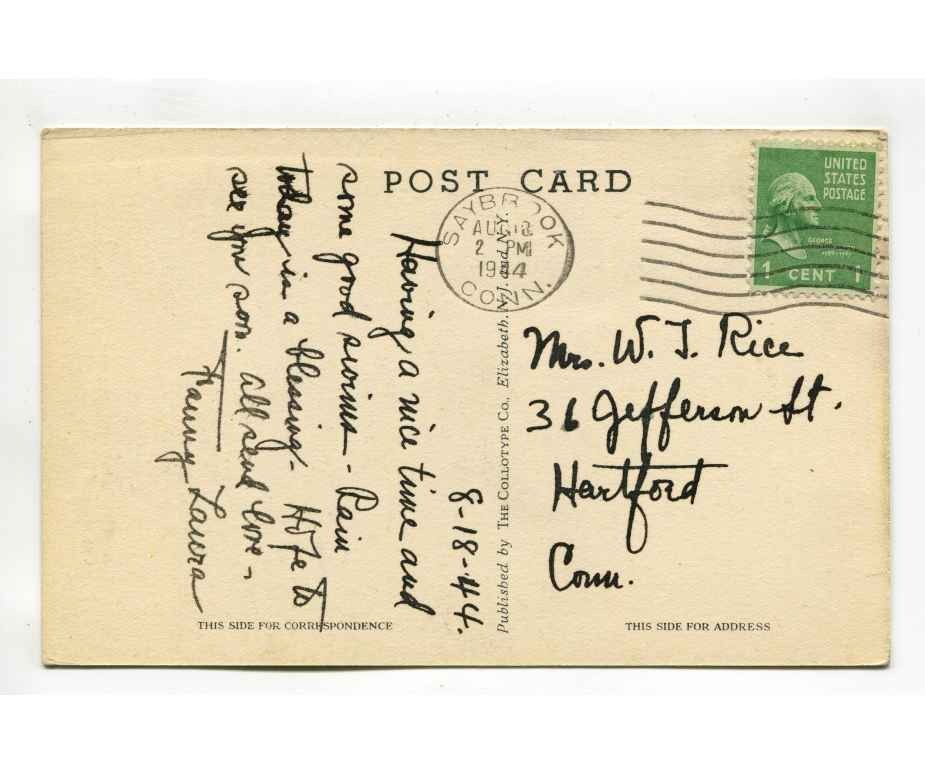 POST CARD
UNITED
STATES
POSTAGE
GEORGE
1 CENT 1
SAYBROOK
AUG 18
2 PM
1944
CONN.
8-18-44.
Having a nice time and
some good swims - Rain
today is a blessing - Hope to
see you soon. All send love -
Fanny Laura
Published by THE COLLOTYPE CO., Elizabeth, N.J. and N.Y.
Mrs. W. J. Rice
36 Jefferson St.
Hartford
Conn.
THIS SIDE FOR CORRESPONDENCE
THIS SIDE FOR ADDRESS